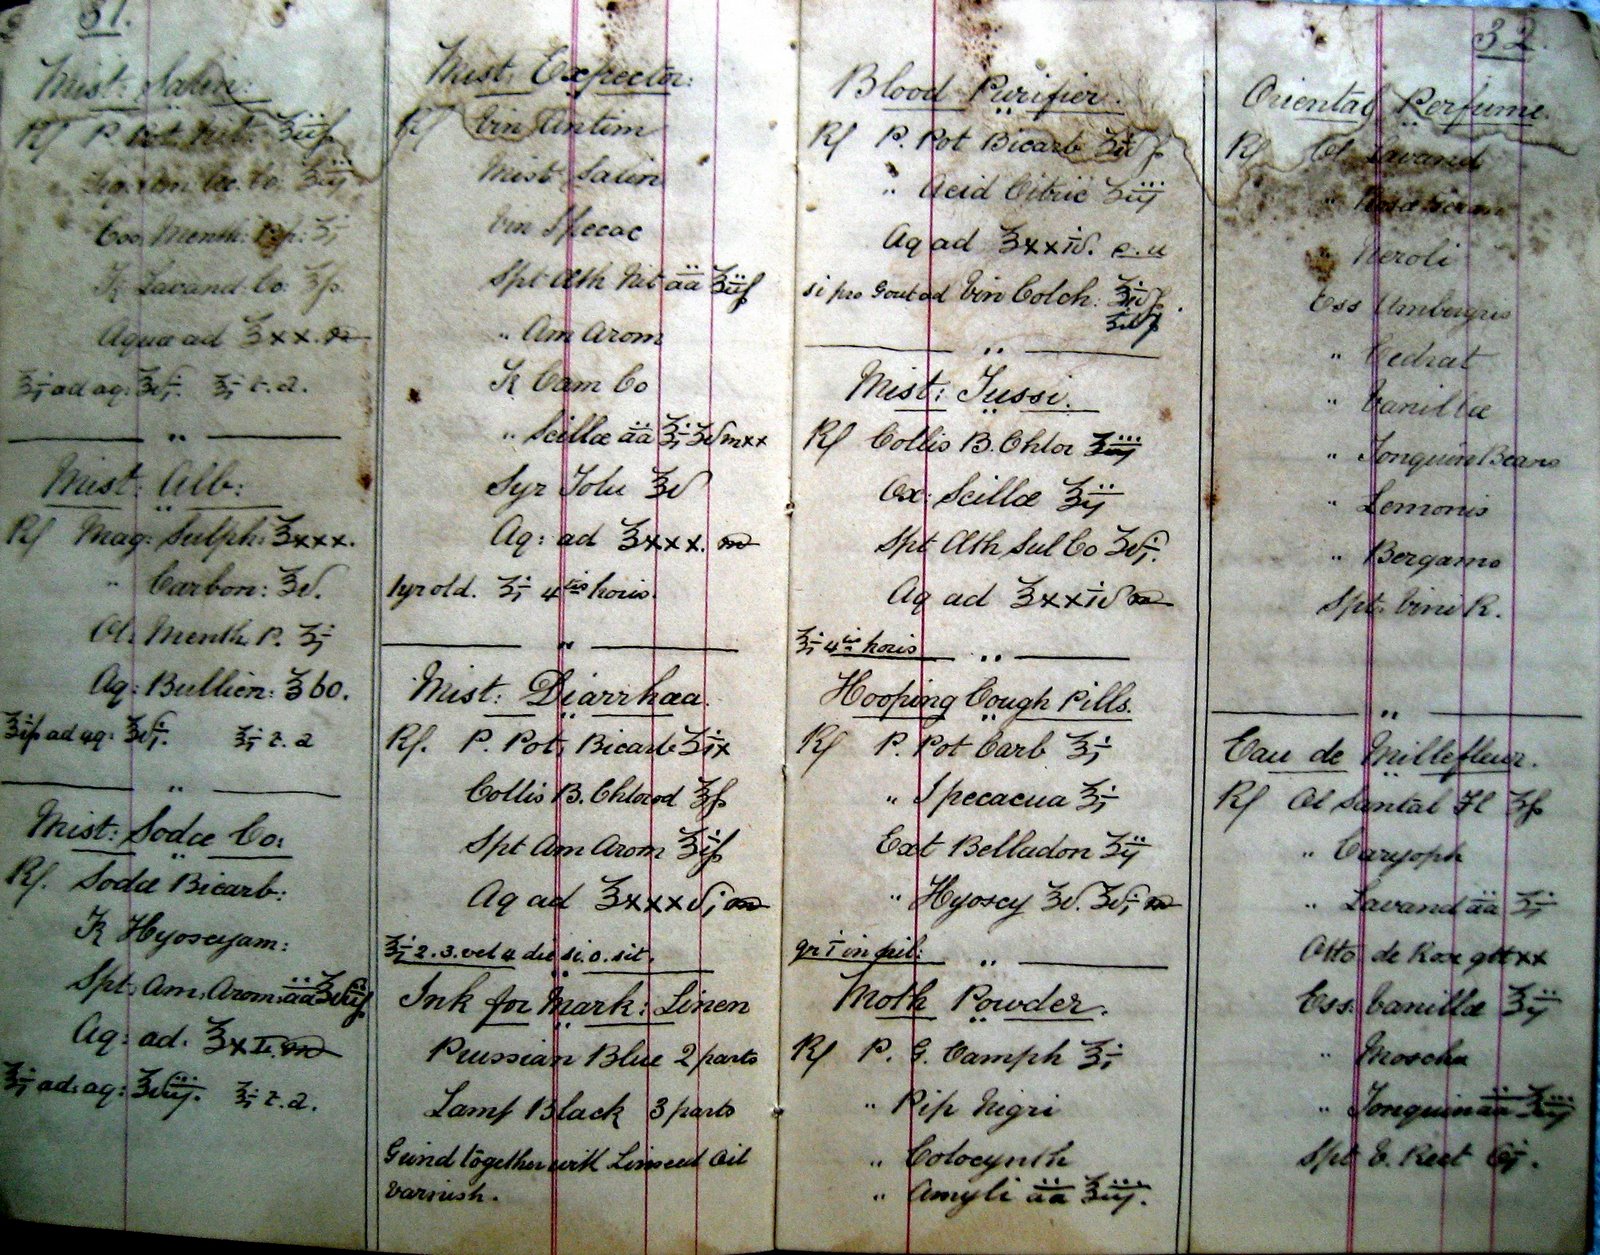 31.
Mist: Salin:
Rf P. Pot. Nit: ʒiiſs
Liq. Am. Ac. Co. ʒiij
Ess Menth: Pip: ʒj
Tr Lavand. Co: ʒſs.
Aquæ ad ℥xx. m
℥j ad aq: ℥vj. ℥j t. d.
"
Mist: Alb:
Rf Mag: Sulph: ℥xxx.
" Carbon: ℥v.
Ol. Menth. P. ʒj
Aq: Bullien: ℥60.
℥iſs ad aq: ℥vj. ℥j t. d
"
Mist: Sodæ Co:
Rf. Sodæ Bicarb:
Tr Hyoscyam:
Spt. Am. Arom: āā
Aq: ad. ℥x m
℥j ad. aq: ℥viij. ℥j t. d.
Mist: Expector:
Rf Vin Antim
Mist Salin
Vin Ipecac
Spt Æth Nit āā ℥iiſs
" Am Arom
Tr Cam Co
" Scillæ āā ℥j ʒv mxx
Syr Tolu ℥v
Aq: ad ℥xxx. m
1 yr old. ʒj 4tis horis.
"
Mist: Diarrhœa.
Rf. P. Pot. Bicarb ʒix
Collis B. Chlorod ℥ſs
Spt Am Arom ℥iſs
Aq ad ℥xxxvj m
℥j 2. 3. vel 4 die si. o. sit.
"
Ink for Mark: Linen
Prussian Blue 2 parts
Lamp Black 3 parts
Grind together with Linseed Oil
Varnish.
32.
Blood Purifier.
Rf P. Pot Bicarb
" Acid Citric ʒiij
Aq ad ℥xxiv.
si pro Gout ad Vin Colch:
"
Mist: Tussi.
Rf Collis B. Chlor ʒiij
Ox: Scillæ ℥ij
Spt Æth Sul Co ʒvj.
Aq ad ℥xxiv m
℥j 4tis horis
"
Hooping Cough Pills.
Rf P. Pot Carb ʒj
" Ipecacua ʒj
Ext Belladon ʒij
" Hyoscy ʒv. ʒvj m
gr i in pil:
"
Moth Powder.
Rf P. G. Camph ℥j
" Pip Nigri
" Colocynth
" Amyli āā ℥iij.
Oriental Perfume.
Rf Ol Lavand
" Rosæ
" Neroli
Ess Ambergris
" Cedrat
" Vanillæ
" Tonquin Beans
" Lemonis
" Bergamo
Spt. Vini R.
"
Eau de Millefleur.
Rf Ol Santal Fl ℥ſs
" Caryoph
" Lavand āā ʒj
Otto de Rose gtt xx
Ess: Vanillæ ℥ij
" Moscha
" Tonquin āā ℥iij
Spt V. Rect Cj.